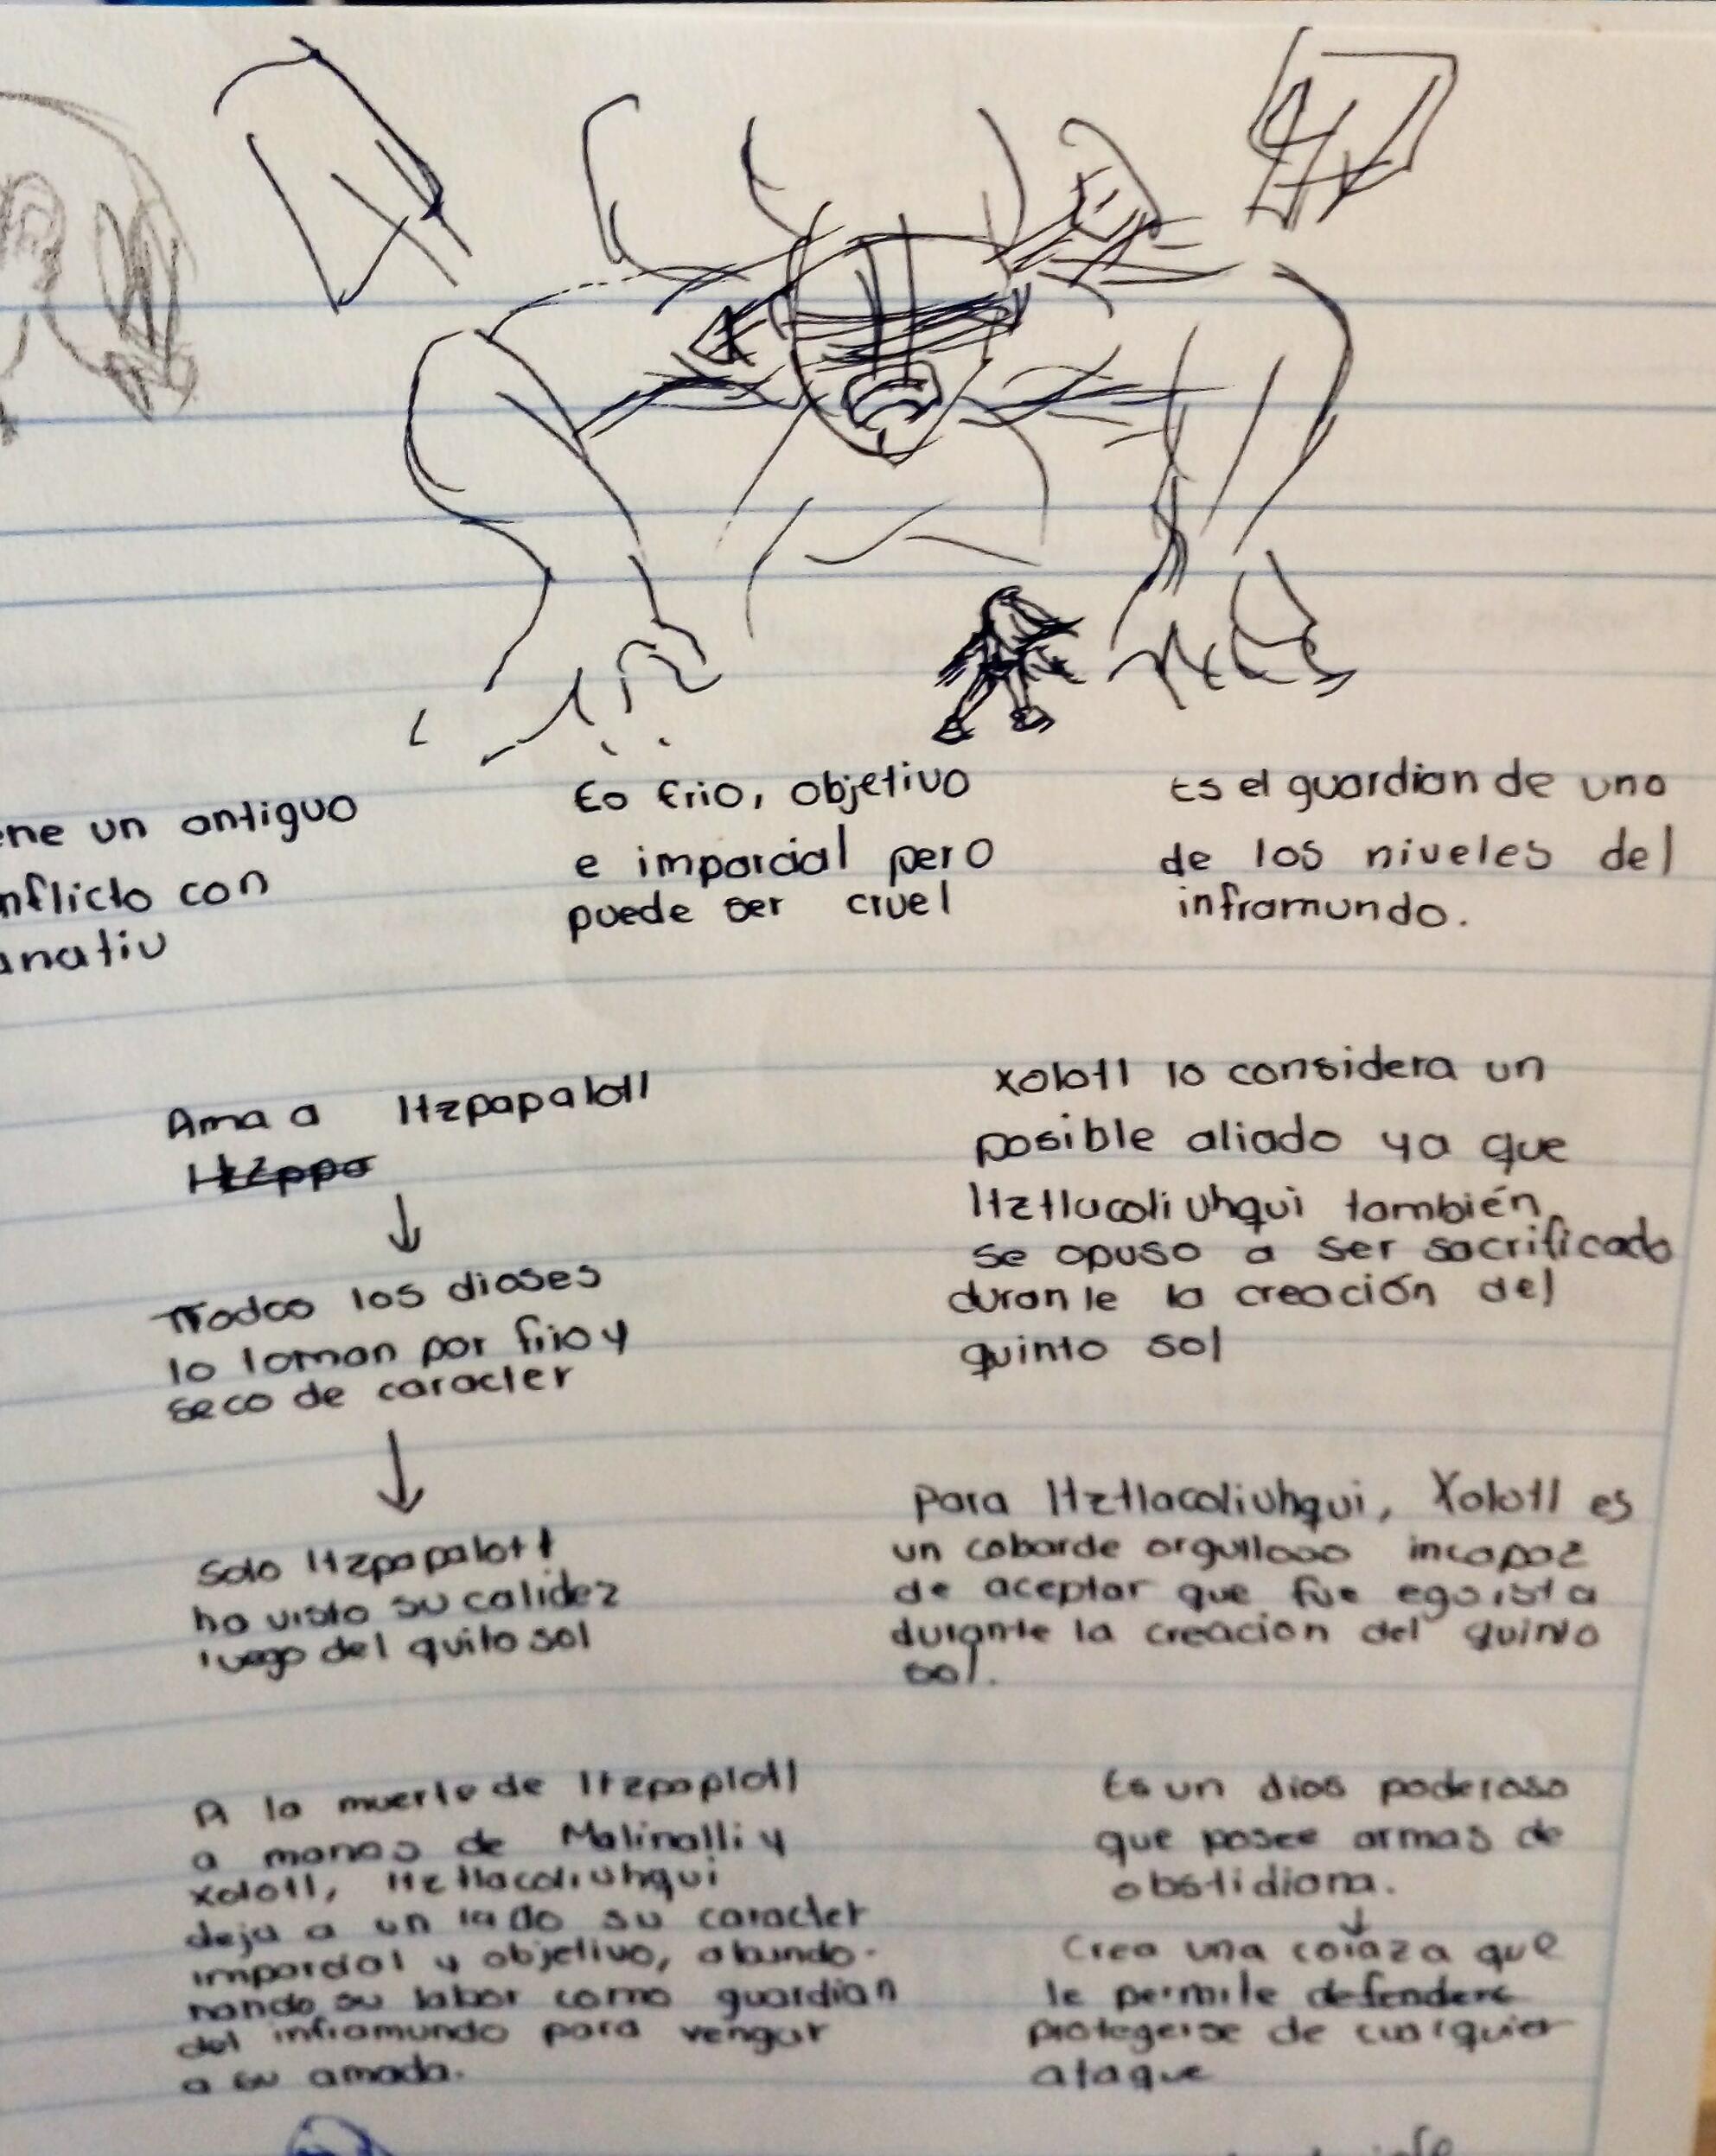 ene un antiguo
nflicto con
anatiu
Es frio, objetivo
e imparcial pero
puede ser cruel
Es el guardian de uno
de los niveles del
inframundo.
Ama a Itzpapalotl
Itzppa
↓
Todos los dioses
lo toman por frio y
seco de caracter
↓
Solo Itzpapalotl
ha visto su calidez
luego del quito sol
Xolotl lo considera un
posible aliado ya que
Itztlacoliuhqui también
se opuso a ser sacrificado
durante la creación del
quinto sol
Para Itztlacoliuhqui, Xolotl es
un cobarde orgulloso incapaz
de aceptar que fue egoista
durante la creacion del quinto
sol.
A la muerte de Itzpaplotl
a manos de Malinalli y
Xolotl, Itztlacoliuhqui
deja a un lado su caracter
imparcial y objetivo, abando-
nando su labor como guardian
del inframundo para vengar
a su amada.
Es un dios poderoso
que posee armas de
obstidiana.
↓
Crea una coraza que
le permite defenders
protegerse de cualquier
ataque